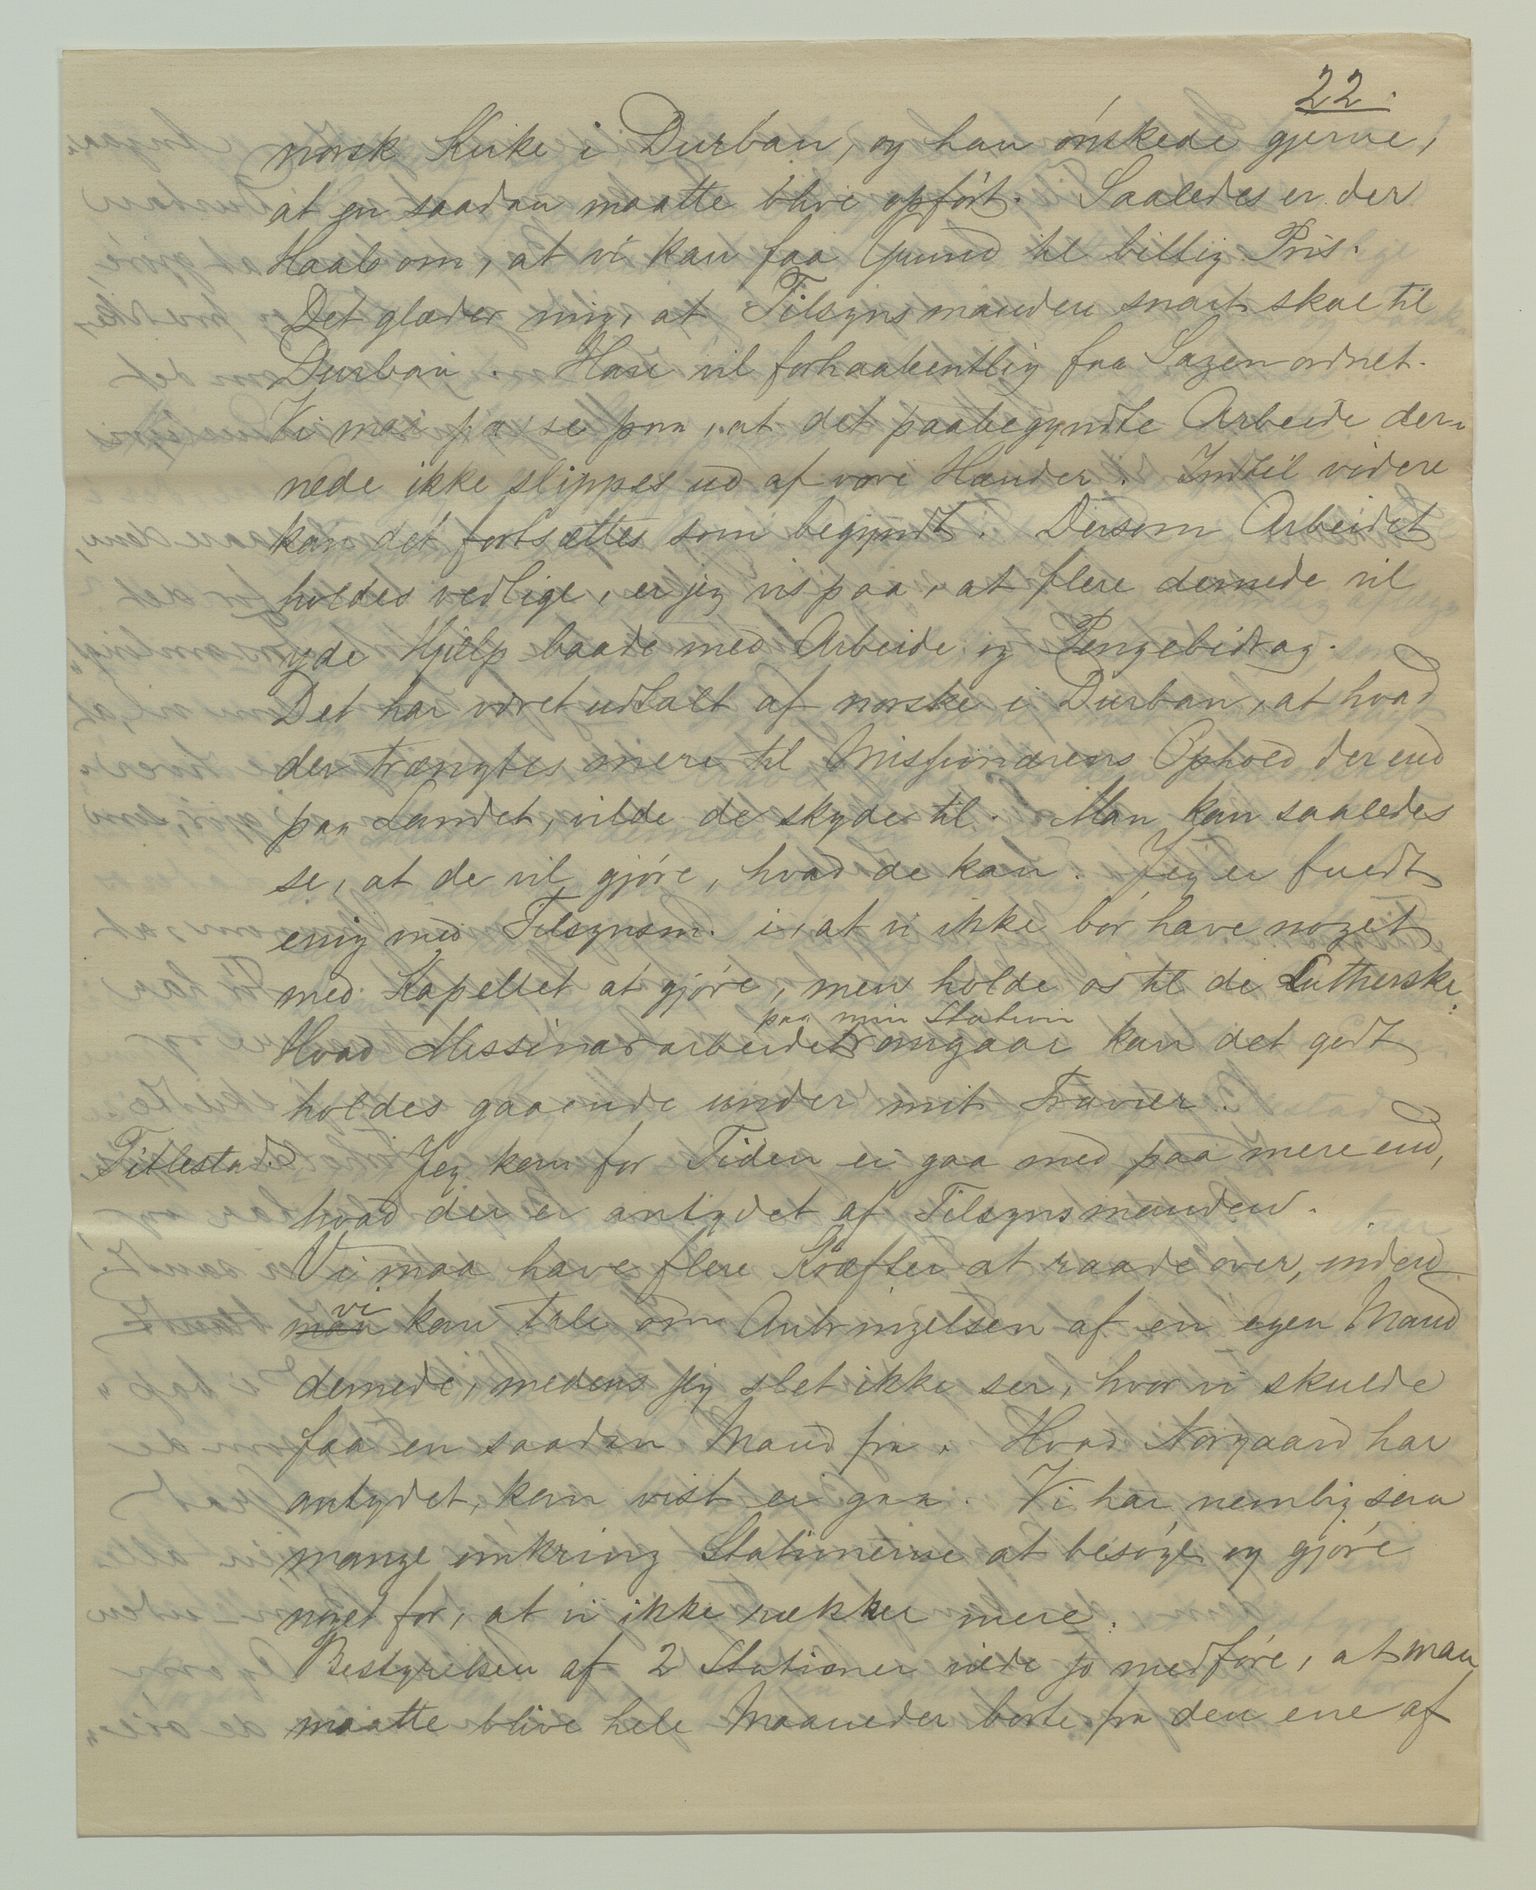 22.
norsk Kirke i Durban, og han ønskede gjerne,
at en saadan maatte blive opført. Saaledes er der
Haab om, at vi kan faa Grund til billig Pris.
Det glæder mig, at Tilsynsmanden snart skal til
Durban. Han vil forhaabentlig faa Sagen ordnet.
Vi maa se paa, at det paabegyndte Arbeide der-
nede ikke slippes ud af vore Hænder. Indtil videre
kan det fortsættes som begyndt. Dersom Arbeidet
holdes vedlige, er jeg vis paa, at flere dernede vil
yde Hjælp baade med Arbeide og Pengebidrag.
Det har været udtalt af norske i Durban, at hvad
der trængtes mere til Missionærens Ophold der end
paa Landet, vilde de skyde til. Man kan saaledes
se, at de vil gjøre, hvad de kan. Jeg er fuldt
enig med Tilsynsm. i, at vi ikke bør have noget
med Kapellet at gjøre, men holde os til de Lutherske.
paa min Station
Hvad Missionararbeidet angaar kan det godt
holdes gaaende under mit Fravær.
Titlestad. Jeg kan for Tiden ei gaa med paa mere end,
hvad der er antydet af Tilsynsmanden.
Vi maa have flere Kræfter at raade over, inden
vi
man kan tale om Anbringelsen af en egen Mand
dernede, medens jeg slet ikke ser, hvor vi skulde
faa en saadan Mand fra. Hvad Norgaard har
antydet, kan vist ei gaa. Vi har nemlig saa
mange omkring Stationerne at besøge og gjøre
noget for, at vi ikke rækker mere.
Bestyrelsen af 2 Stationer vilde jo medføre, at man
maatte blive hele Maaneder borte fra den ene af